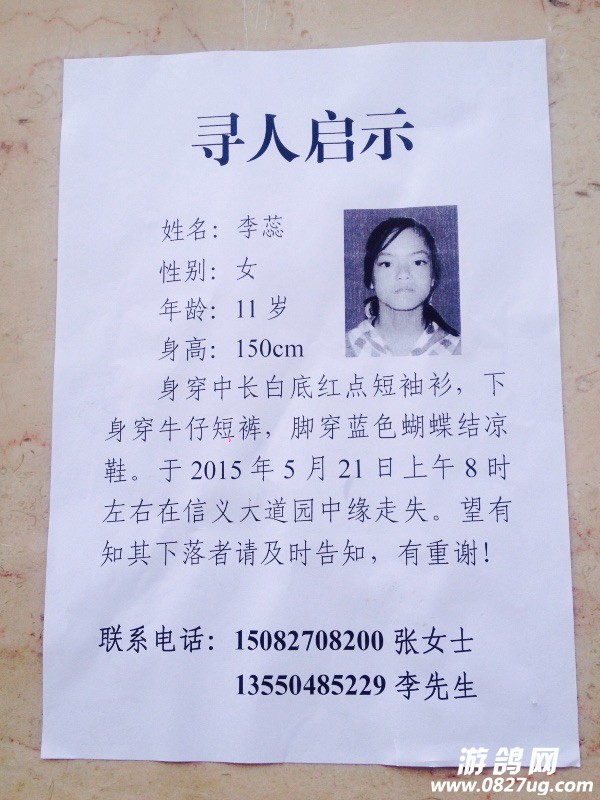 寻人启示
姓名：李蕊
性别：女
年龄：11 岁
身高：150cm
身穿中长白底红点短袖衫，下
身穿牛仔短裤，脚穿蓝色蝴蝶结凉
鞋。于 2015 年 5 月 21 日上午 8 时
左右在信义大道园中缘走失。望有
知其下落者请及时告知，有重谢！
联系电话：15082708200 张女士
13550485229 李先生
游鸽网
www.0827ug.com